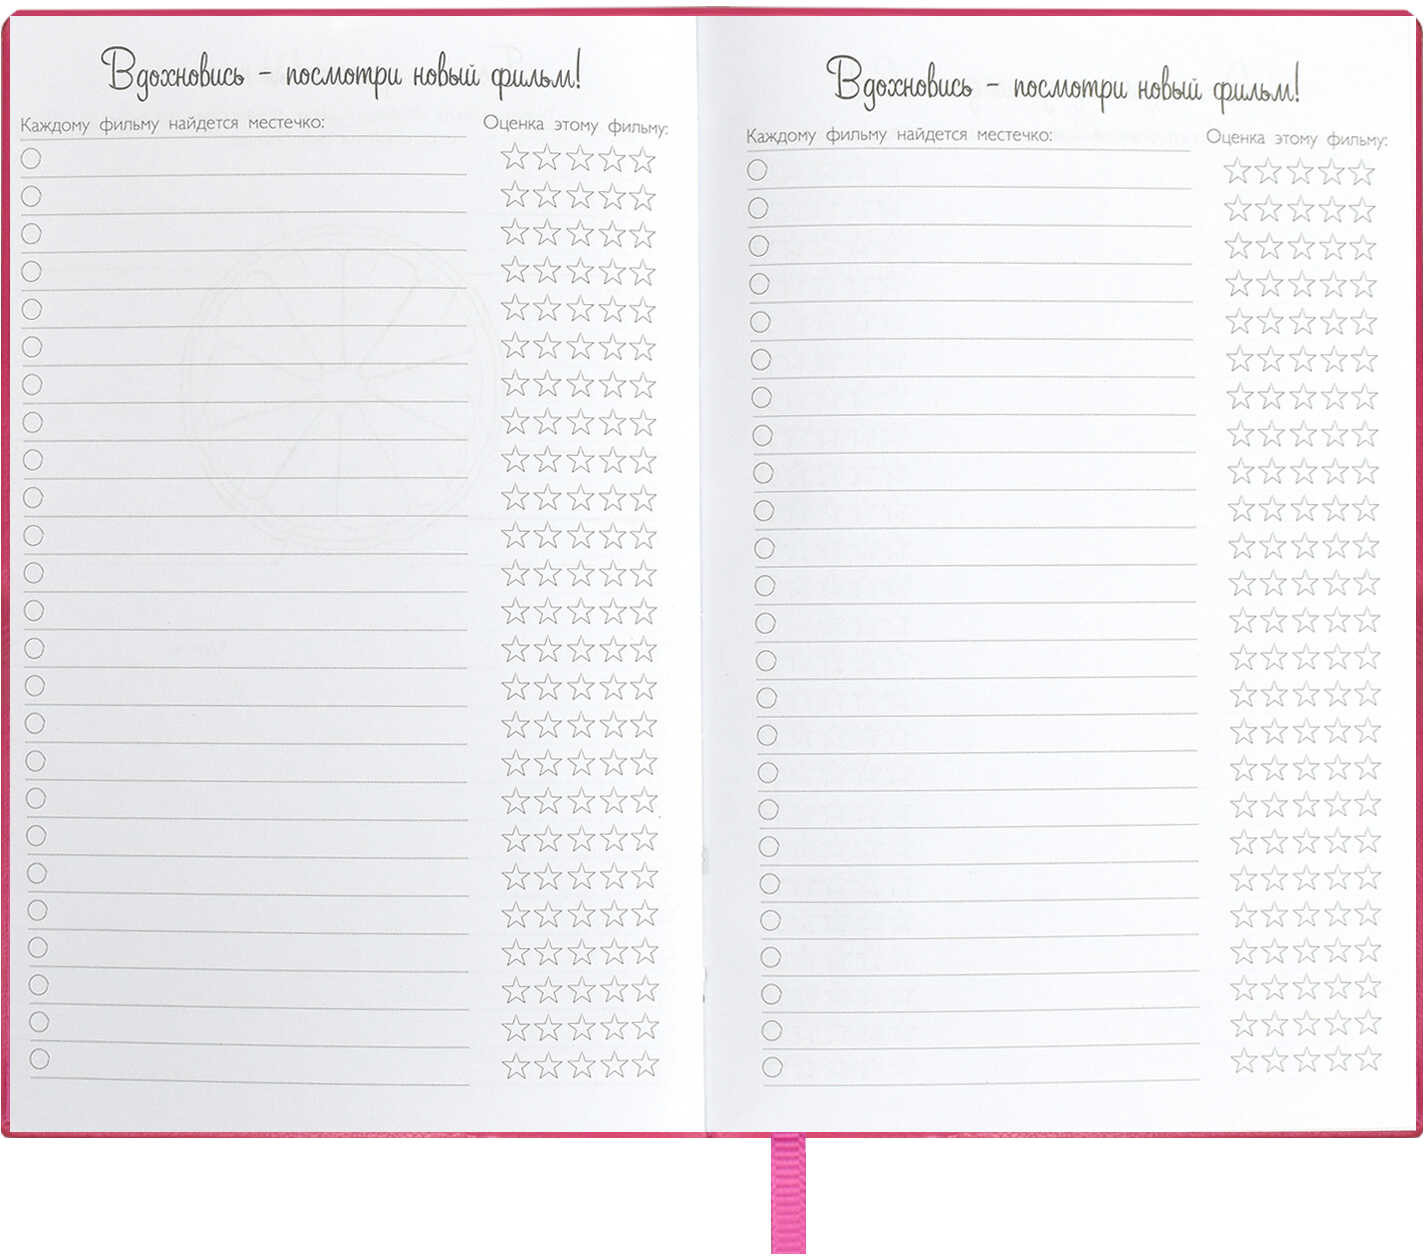 Вдохновись - посмотри новый фильм!
Каждому фильму найдется местечко: Оценка этому фильму:
Вдохновись - посмотри новый фильм!
Каждому фильму найдется местечко: Оценка этому фильму: